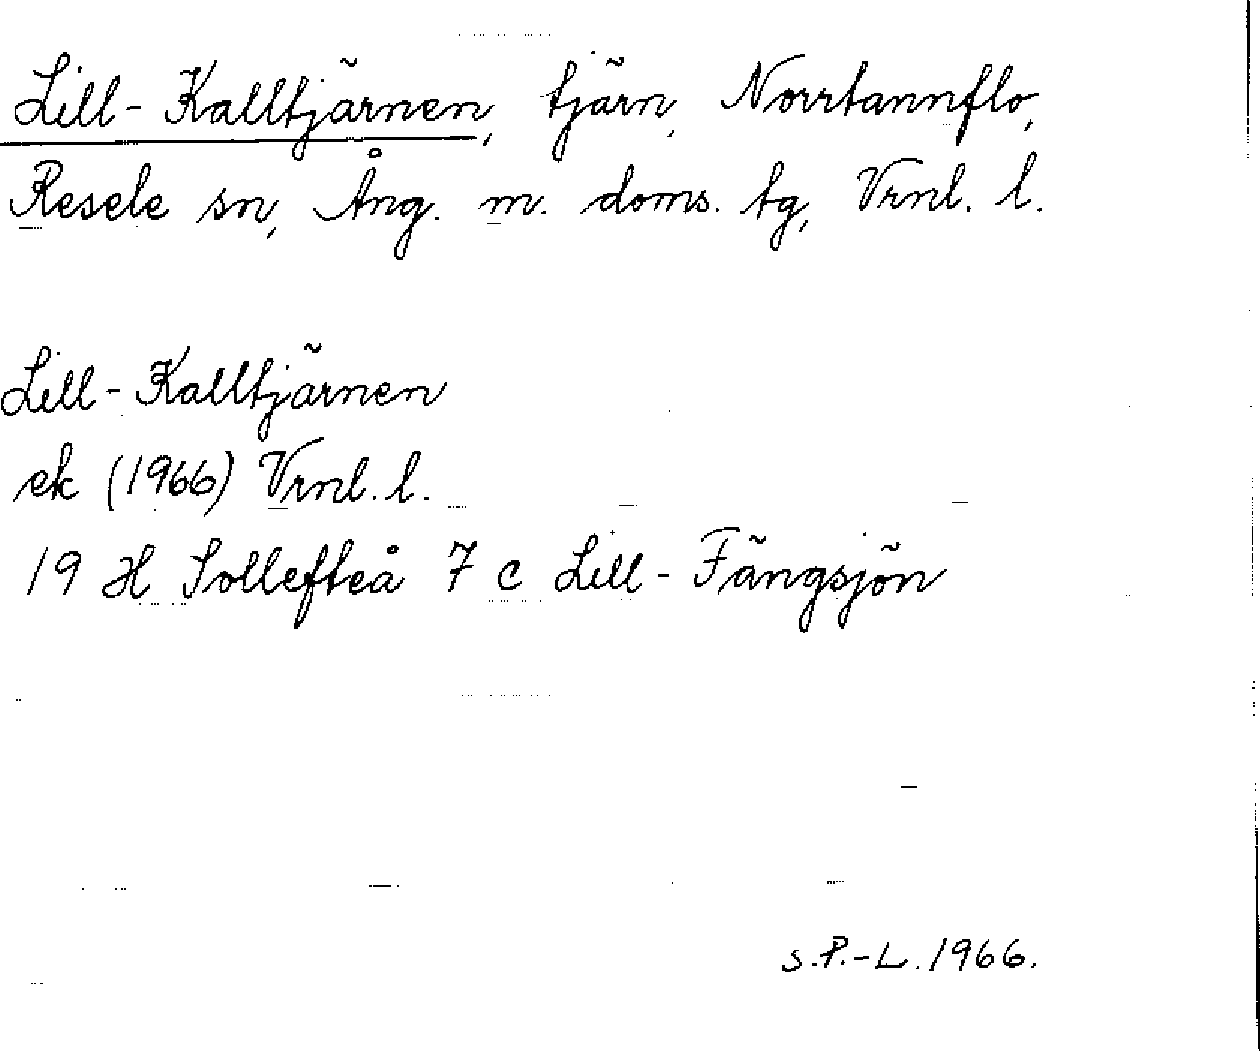 Lill-Kalltjärnen, tjärn, Norrtannflo,
Resele sn, Ång. m. doms. tg, Vrnl. l.
Lill-Kalltjärnen
ek (1966) Vrnl. l.
19 H Sollefteå 7 c Lill-Fängsjön
S.P.-L. 1966.